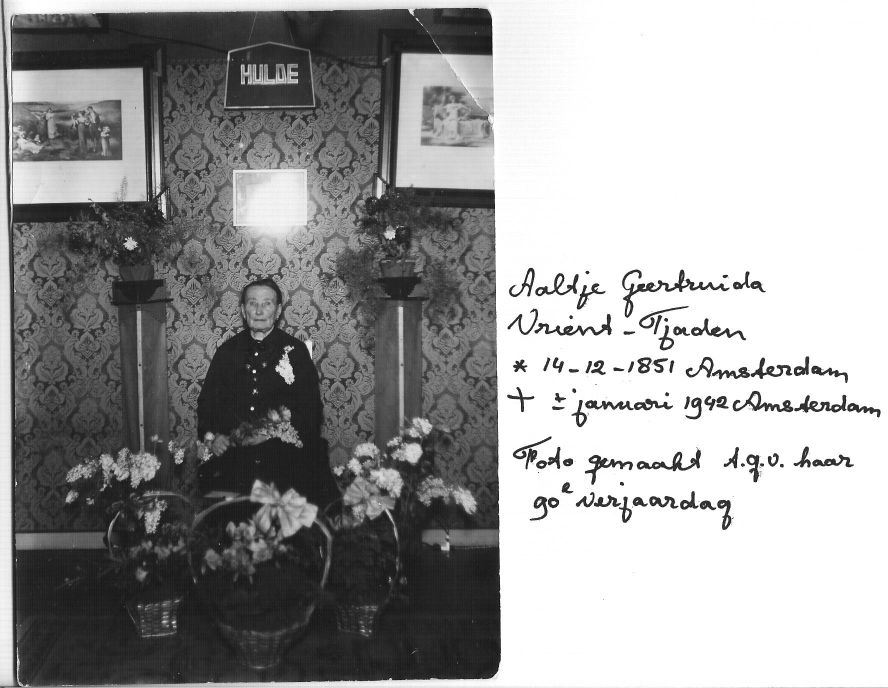 HULDE
Aaltje Geertruida
Vriént - Tjaden
* 14-12-1851 Amsterdam
† ± januari 1942 Amsterdam
Foto gemaakt t.g.v. haar
90e verjaardag